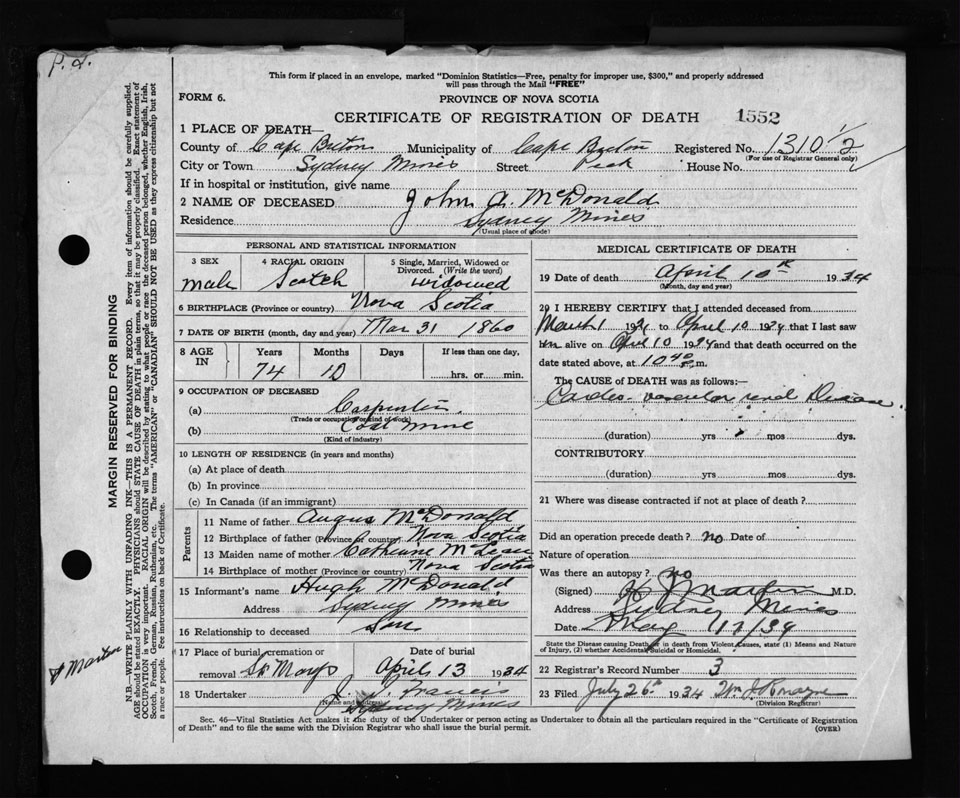 P.D.
This form if placed in an envelope, marked "Dominion Statistics—Free, penalty for improper use, $300," and properly addressed
will pass through the Mail "FREE"
FORM 6.
PROVINCE OF NOVA SCOTIA
CERTIFICATE OF REGISTRATION OF DEATH 1552
1 PLACE OF DEATH—
County of Cape Breton Municipality of Cape Breton Registered No. 1310½
(For use of Registrar General only)
City or Town Sydney Mines Street Peck House No.
If in hospital or institution, give name
2 NAME OF DECEASED John A. McDonald
Residence Sydney Mines
(Usual place of abode)
PERSONAL AND STATISTICAL INFORMATION
3 SEX male
4 RACIAL ORIGIN Scotch
5 Single, Married, Widowed or Divorced. (Write the word) widowed
6 BIRTHPLACE (Province or country) Nova Scotia
7 DATE OF BIRTH (month, day and year) Mar 31 1860
8 AGE IN Years Months Days If less than one day.
74 10 hrs. or min.
9 OCCUPATION OF DECEASED
(a) Carpenter
(Trade or occupation or kind of work)
(b) Coal Mine
(Kind of industry)
10 LENGTH OF RESIDENCE (in years and months)
(a) At place of death
(b) In province
(c) In Canada (if an immigrant)
Parents
11 Name of father Angus McDonald
12 Birthplace of father (Province or country) Nova Scotia
13 Maiden name of mother Catherine McLean
14 Birthplace of mother (Province or country) Nova Scotia
15 Informant's name Hugh McDonald
Address Sydney Mines
16 Relationship to deceased Son
17 Place of burial, cremation or removal St Marys
Date of burial April 13 1934
18 Undertaker J. Francis
(Name and address)
Sydney Mines
MEDICAL CERTIFICATE OF DEATH
19 Date of death April 10th 1934
(Month, day and year)
20 I HEREBY CERTIFY that I attended deceased from
March 1 1934 to April 10 1934 that I last saw
him alive on April 10 1934 and that death occurred on the
date stated above, at 10 40 p.m.
The CAUSE OF DEATH was as follows:—
Cardio vascular renal Disease
(duration) yrs mos dys.
CONTRIBUTORY
(duration) yrs mos dys.
21 Where was disease contracted if not at place of death?
Did an operation precede death? no Date of
Nature of operation
Was there an autopsy? no
(Signed) Martin M.D.
Address Sydney Mines
Date May
State the Disease causing Death, or in death from Violent Causes, state (1) Means and Nature
of Injury, (2) whether Accidental, Suicidal or Homicidal.
22 Registrar's Record Number 3
23 Filed July 26th 1934 Wm
(Division Registrar)
Sec. 46—Vital Statistics Act makes it the duty of the Undertaker or person acting as Undertaker to obtain all the particulars required in the "Certificate of Registration
of Death" and to file the same with the Division Registrar who shall issue the burial permit.
(OVER)
MARGIN RESERVED FOR BINDING
N.B.—WRITE PLAINLY WITH UNFADING INK—THIS IS A PERMANENT RECORD. Every item of information should be carefully supplied.
AGE should be stated EXACTLY. PHYSICIANS should STATE CAUSE OF DEATH in plain terms, so that it may be properly classified. Exact statement of
OCCUPATION is very important. RACIAL ORIGIN will be described by stating to what people or race the deceased person belonged, whether English, Irish,
Scotch, French, German, Russian, Ruthenian, etc. The terms "AMERICAN" or "CANADIAN" SHOULD NOT BE USED as they express citizenship but not
a race or people. Fee instructions on back of Certificate.
Martin